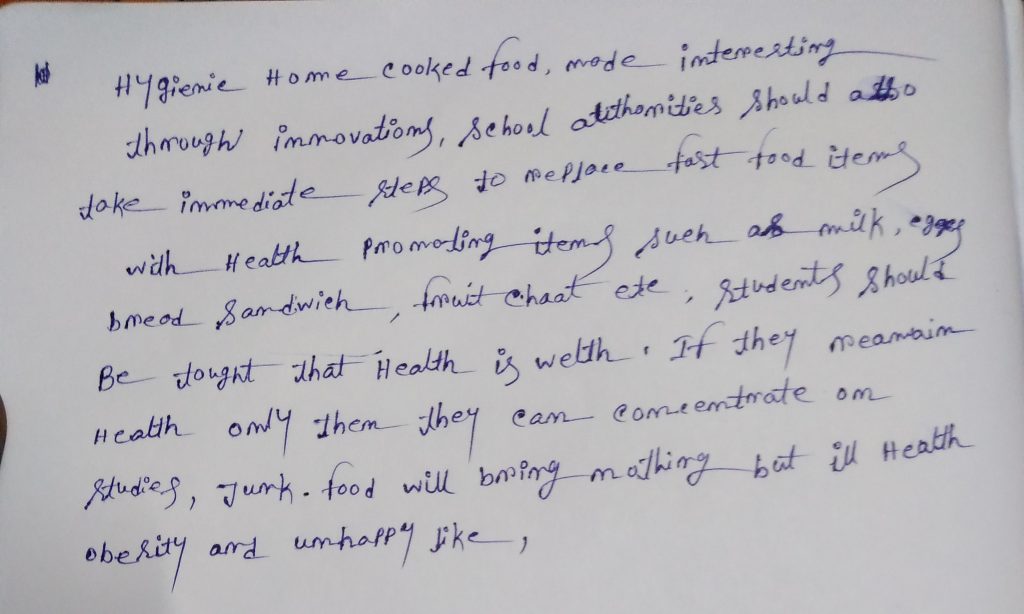 Hygienic Home cooked food, made interesting
through innovations, School authorities should also
take immediate steps to replace fast food items
with Health promoting items such as milk, eggs
bread Sandwich, fruit chaat etc, Students should
Be tought that Health is welth. If they reamain
Health only then they can concentrate on
studies, Junk. food will bring nothing but ill Health
obesity and unhappy like,